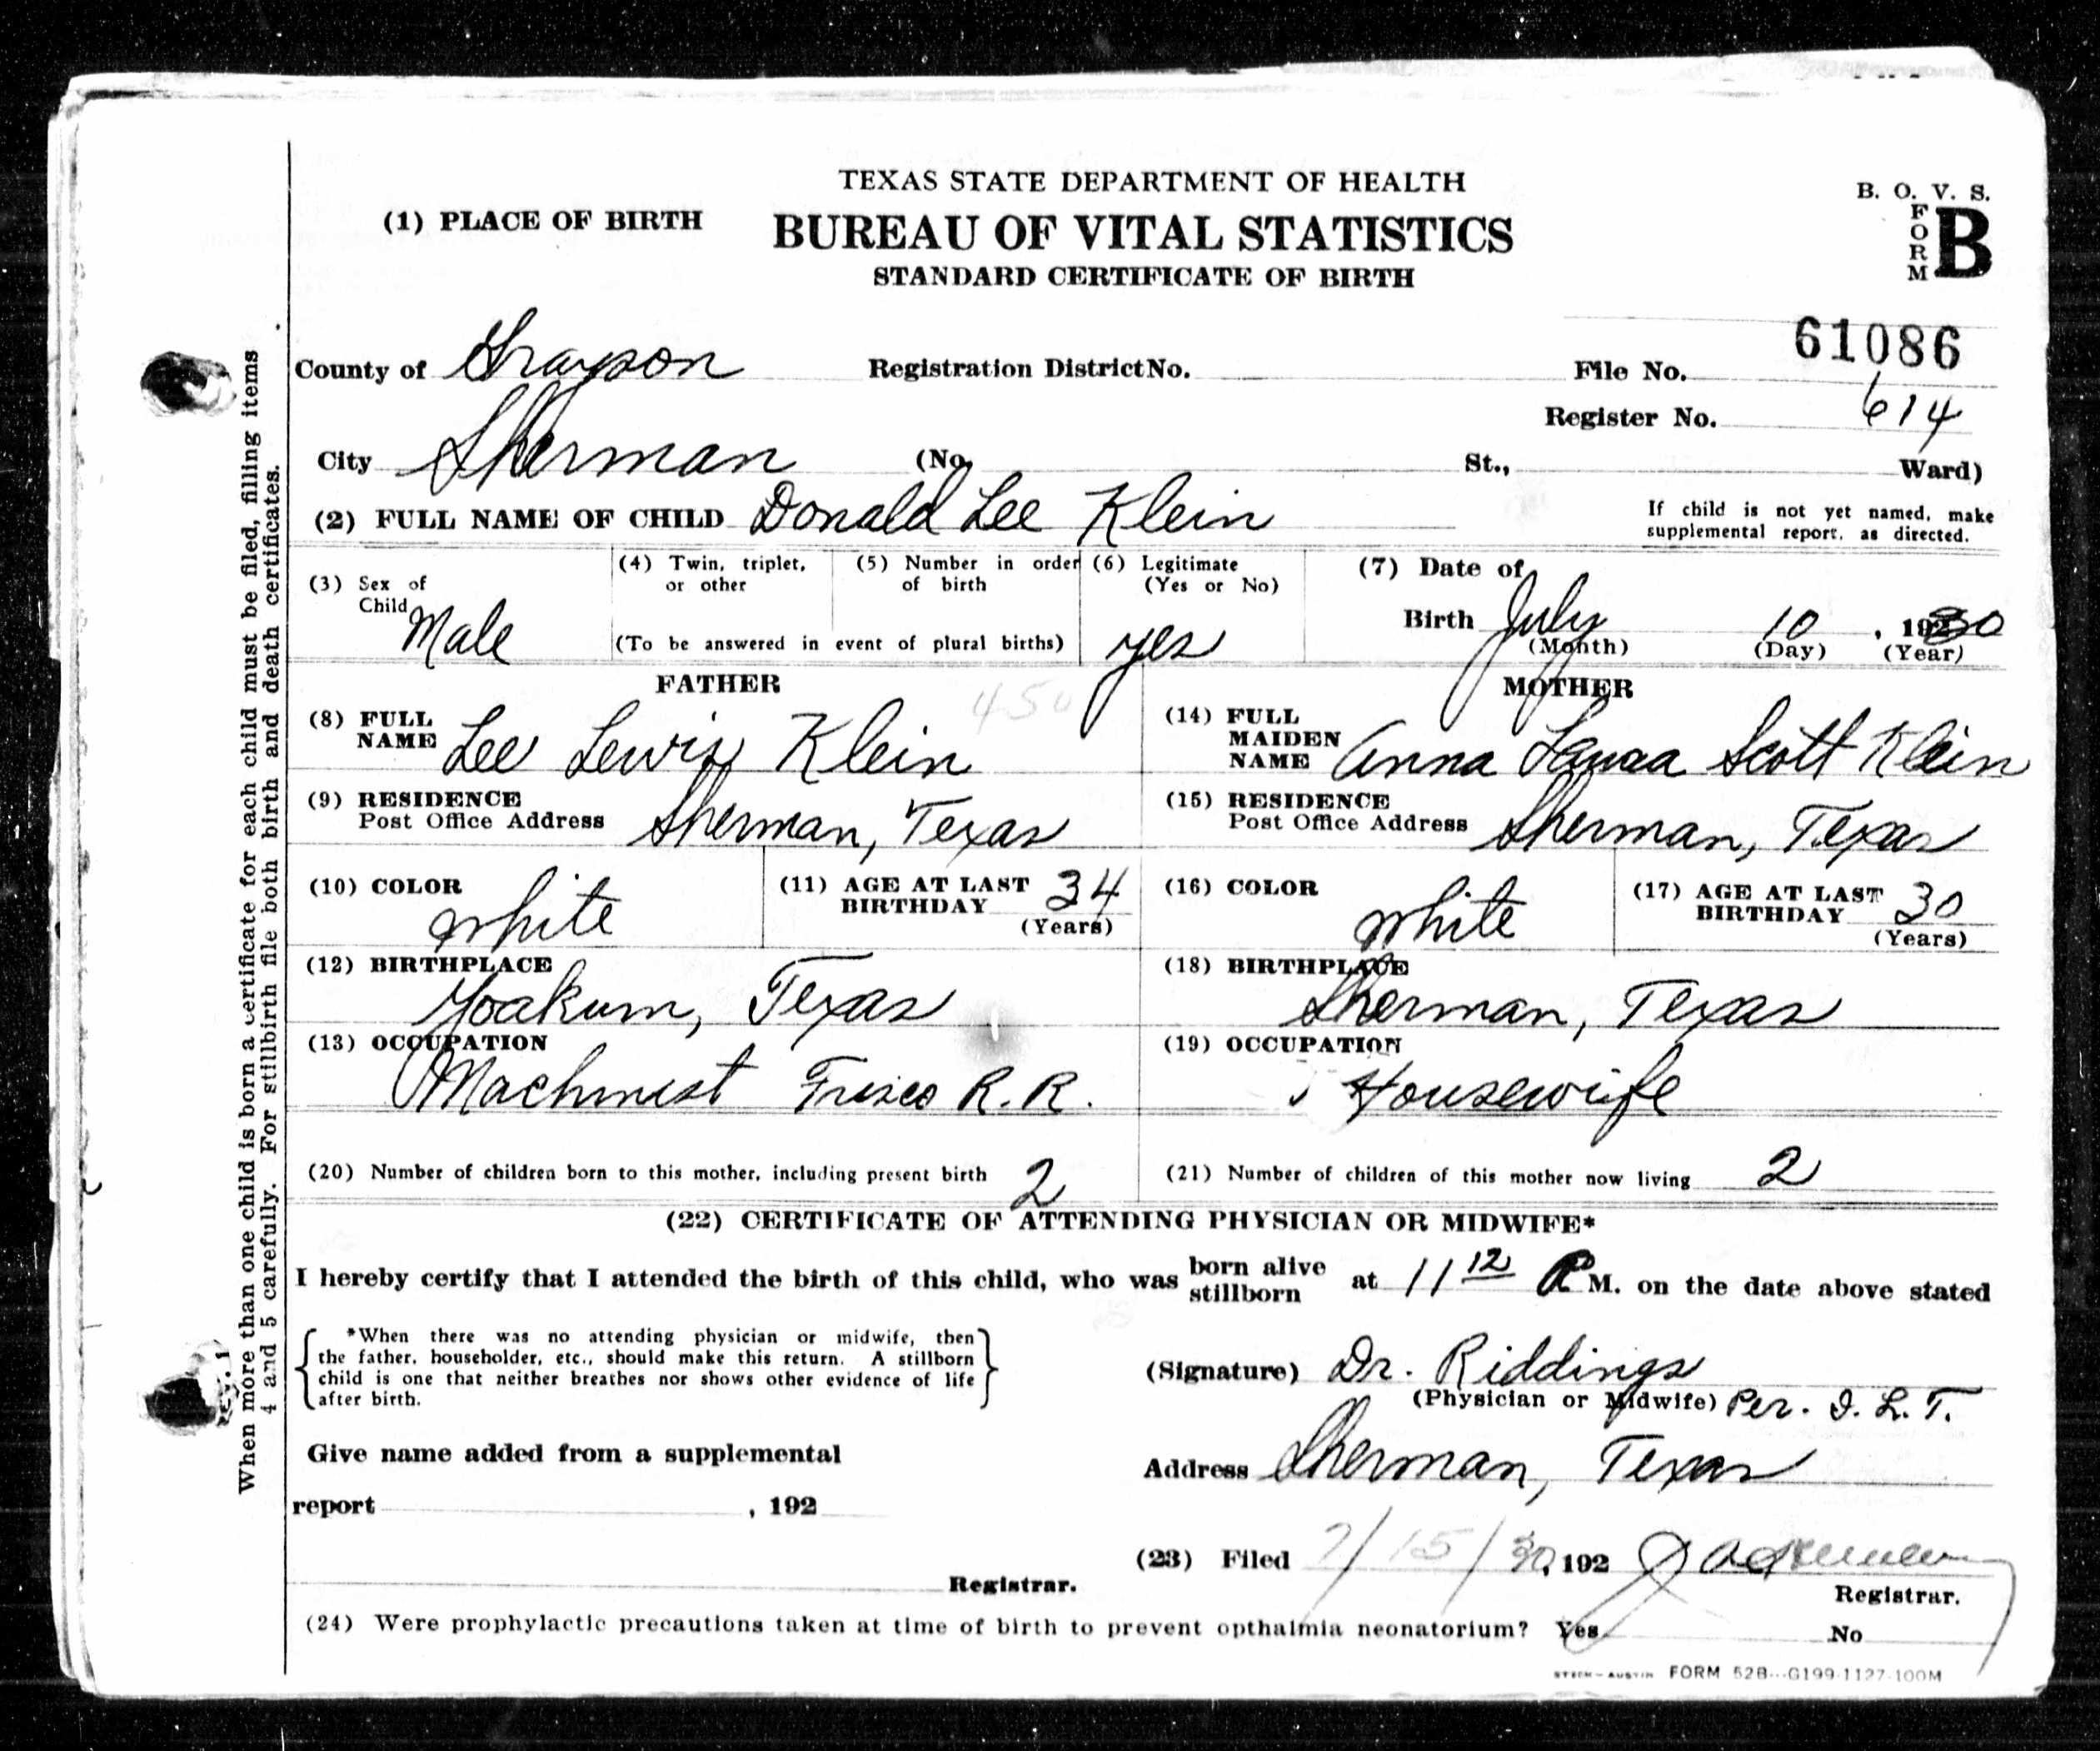 TEXAS STATE DEPARTMENT OF HEALTH
B. O. V. S.
(1) PLACE OF BIRTH
BUREAU OF VITAL STATISTICS
FORM B
STANDARD CERTIFICATE OF BIRTH
61086
County of Grayson Registration District No. File No.
Register No. 614
City Sherman (No. St., Ward)
(2) FULL NAME OF CHILD Donald Lee Klein
If child is not yet named, make
supplemental report, as directed.
(3) Sex of
Child Male
(4) Twin, triplet,
or other
(5) Number in order
of birth
(To be answered in event of plural births)
(6) Legitimate
(Yes or No)
yes
(7) Date of
Birth July 10, 1930
(Month) (Day) (Year)
FATHER
450
(8) FULL
NAME Lee Lewis Klein
(9) RESIDENCE
Post Office Address Sherman, Texas
(10) COLOR
white
(11) AGE AT LAST
BIRTHDAY 34
(Years)
(12) BIRTHPLACE
Yoakum, Texas
(13) OCCUPATION
Machinist Frisco R. R.
MOTHER
(14) FULL
MAIDEN
NAME Anna Laura Scott Klein
(15) RESIDENCE
Post Office Address Sherman, Texas
(16) COLOR
white
(17) AGE AT LAST
BIRTHDAY 30
(Years)
(18) BIRTHPLACE
Sherman, Texas
(19) OCCUPATION
Housewife
(20) Number of children born to this mother, including present birth 2
(21) Number of children of this mother now living 2
(22) CERTIFICATE OF ATTENDING PHYSICIAN OR MIDWIFE*
I hereby certify that I attended the birth of this child, who was born alive stillborn at 11 12 P M. on the date above stated
*When there was no attending physician or midwife, then
the father, householder, etc., should make this return. A stillborn
child is one that neither breathes nor shows other evidence of life
after birth.
(Signature) Dr. Riddings
(Physician or Midwife) Per. I. L. T.
Give name added from a supplemental
Address Sherman, Texas
report , 192
(23) Filed 7/15/30, 192
Registrar.
Registrar.
(24) Were prophylactic precautions taken at time of birth to prevent opthalmia neonatorium? Yes No
STECK-AUSTIN FORM 52B---G199-1127-100M
When more than one child is born a certificate for each child must be filed, filling items
4 and 5 carefully. For stillbirth file both birth and death certificates.